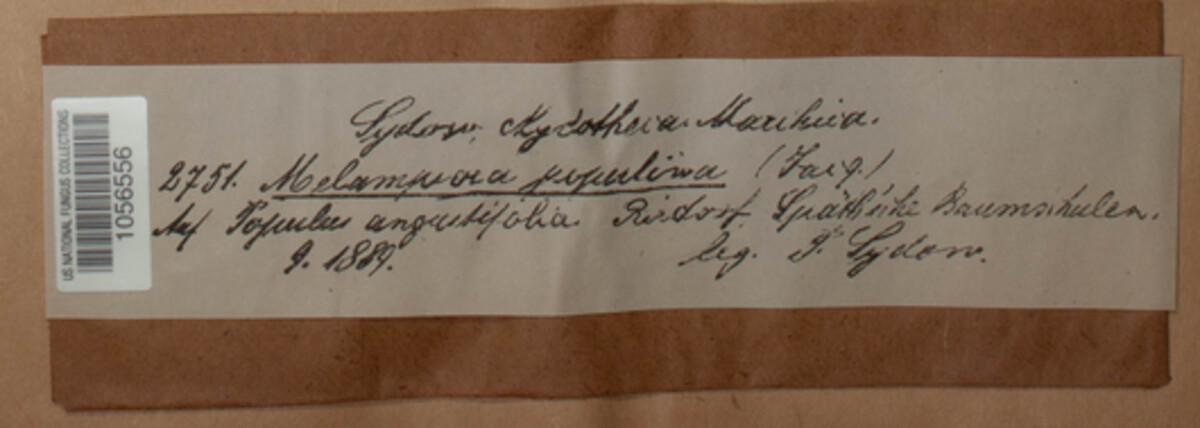 US NATIONAL FUNGUS COLLECTIONS
1056556
Sydow, Mycotheca Marchica.
2751. Melampsora populina (Jacq.)
Auf Populus angustifolia. Rixdorf Späth'sche Baumschulen.
9. 1889. leg. P. Sydow.